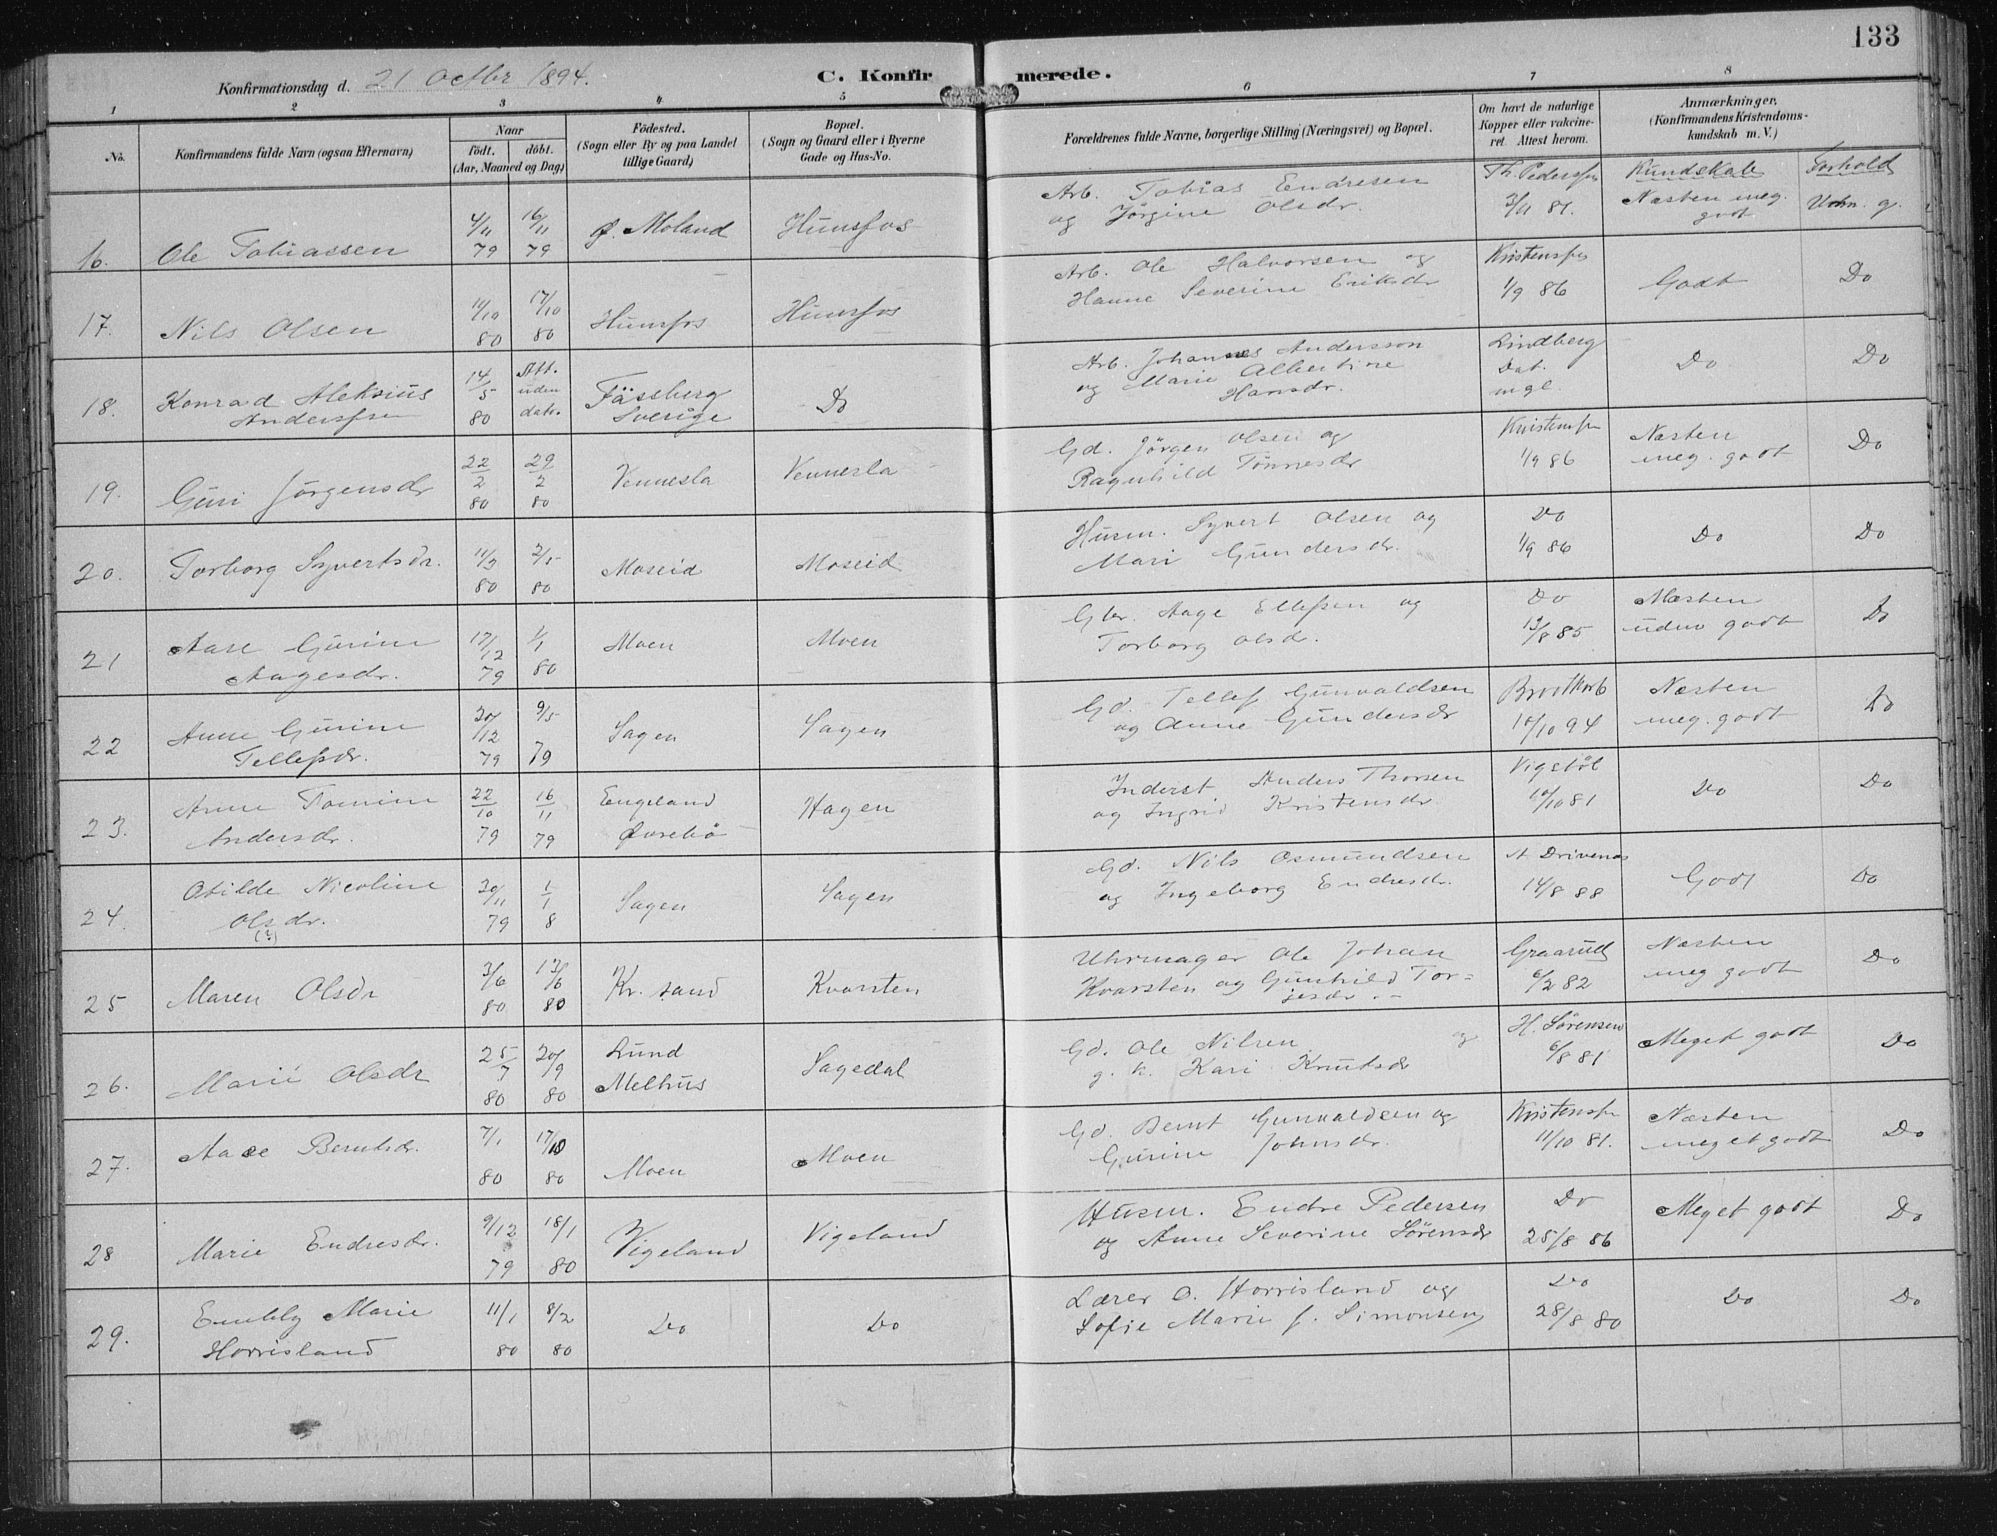 133
Konfirmationsdag d. 21 Octbr 1894.
C. Konfirmerede.
1 2 3 4 5 6 7 8
No.
Konfirmandens fulde Navn (ogsaa Efternavn)
Naar
födt. döbt.
(Aar, Maaned og Dag)
Födested.
(Sogn eller By og paa Landet
tillige Gaard)
Bopæl.
(Sogn og Gaard eller i Byerne
Gade og Hus-No.
Forældrenes fulde Navne, borgerlige Stilling (Næringsvei) og Bopæl.
Om havt de naturlige
Kopper eller vakcine-
ret. Attest herom.
Anmærkninger.
(Konfirmandens Kristendoms-
kundskab m. V.)
Kundskab Forhold
16. Ole Tobiassen 4/11 79 16/11 79 Ø. Moland Hunsfos
Arb. Tobias Endresen
og Jörgine Olsdr.
Th. Pedersen
81.
Næsten meg.
godt
Udm. g.
17. Nils Olsen 14/10 80 17/10 80 Hunsfos Hunsfos
Arb. Ole Halvorsen og
Hanne Severine Eriksdr
Kristensen
1/9 86
Godt Do
18. Konrad Aleksius
Anderssen
14/5 80
Att.
uden
dato.
Fässberg
Sverige
Do
Arb. Johannes Andersson
og Marie Albertine
Hansdr.
Lindberg
Dat.
mgl.
Do Do
19. Guri Jörgensdr 22/2 80 29/2 80 Vennesla Vennesla
Gd. Jörgen Olsen og
Ragnhild Tönnesdr
Kristensen
1/9 86
Næsten
meg. godt
Do
20. Torborg Syvertsdr. 80 80 Moseid Moseid
Husm. Syvert Olsen og
Mari Gundersdr.
Do
1/9 86
Do Do
21 Aase Gurine
Aagesdr.
17/12 79 1/1 80 Moen Moen
Gbr. Aage Ellefsen og
Torborg Olsdr.
Do
13/8 85
Næsten
udm godt
Do
22 Anne Gurine
Tellefsdr.
20/12 79 9/5 79 Sagen Sagen
Gd. Tellef Gunvaldsen
og Anne Gundersdr
10/10 94
Næsten
meg. godt
Do
23. Anne Tomine
Andersdr.
22/10 79 16/11 79
Engeland
Øvrebö
Hagen
Inderst Anders Thorsen
og Ingrid Kristensdr.
Vigstöl
10/10 81
Do Do
24. Otilde Nicoline
Olsdr.
(?)
20/11 79 1/1 8 Sagen Sagen
Gd. Nils Osmundsen
og Ingeborg Endresdr.
A Drivenes
14/8 88
Godt Do
25 Maren Olsdr 3/6 80 13/6 80 Kr. sand Kvarsten
Uhrmager Ole Johan
Kvarsten og Gunhild Tor-
jesdr.
Graarud
6/2 82
Næsten
meg godt
Do
26. Marie Olsdr 25/7 80 20/9 80
Lund
Melhus
Sagedal
Gd. Ole Nilsen og
g. k. Kari Knutsdr
H. Sörensen
6/8 81
Meget godt Do
27. Aase Berntsdr. 7/1 80 17/10 80 Moen Moen
Gd. Bernt Gunvaldsen og
Gurine Johnsdr.
Kristensen
11/10 81.
Næsten
meget godt
Do
28 Marie Endresdr. 9/12 79 18/1 80 Vigeland Vigeland
Husm. Endre Pedersen
og Anne Severine Sörensdr
Do
25/8 86
Meget godt Do
29. Emely Marie
Horrisland
11/1 80 8/2 80 Do Do
Lærer O. Horrisland og
Sofie Marie f. Simonsen
Do
28/8 80
Do Do